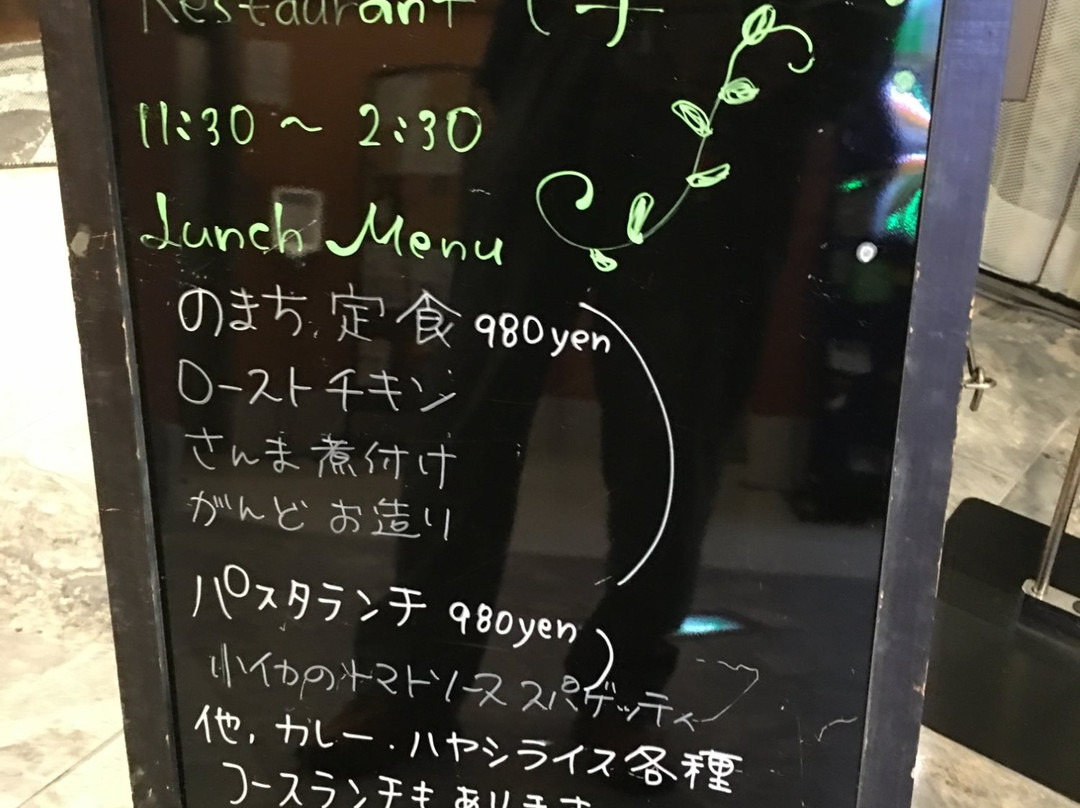 Restaurant
11:30 ~ 2:30
Lunch Menu
のまち定食 980yen
ローストチキン
さんま煮付け
がんど お造り
パスタランチ 980yen
小イカのトマトソーススパゲッティ
他,カレー.ハヤシライス各種
コースランチもあります